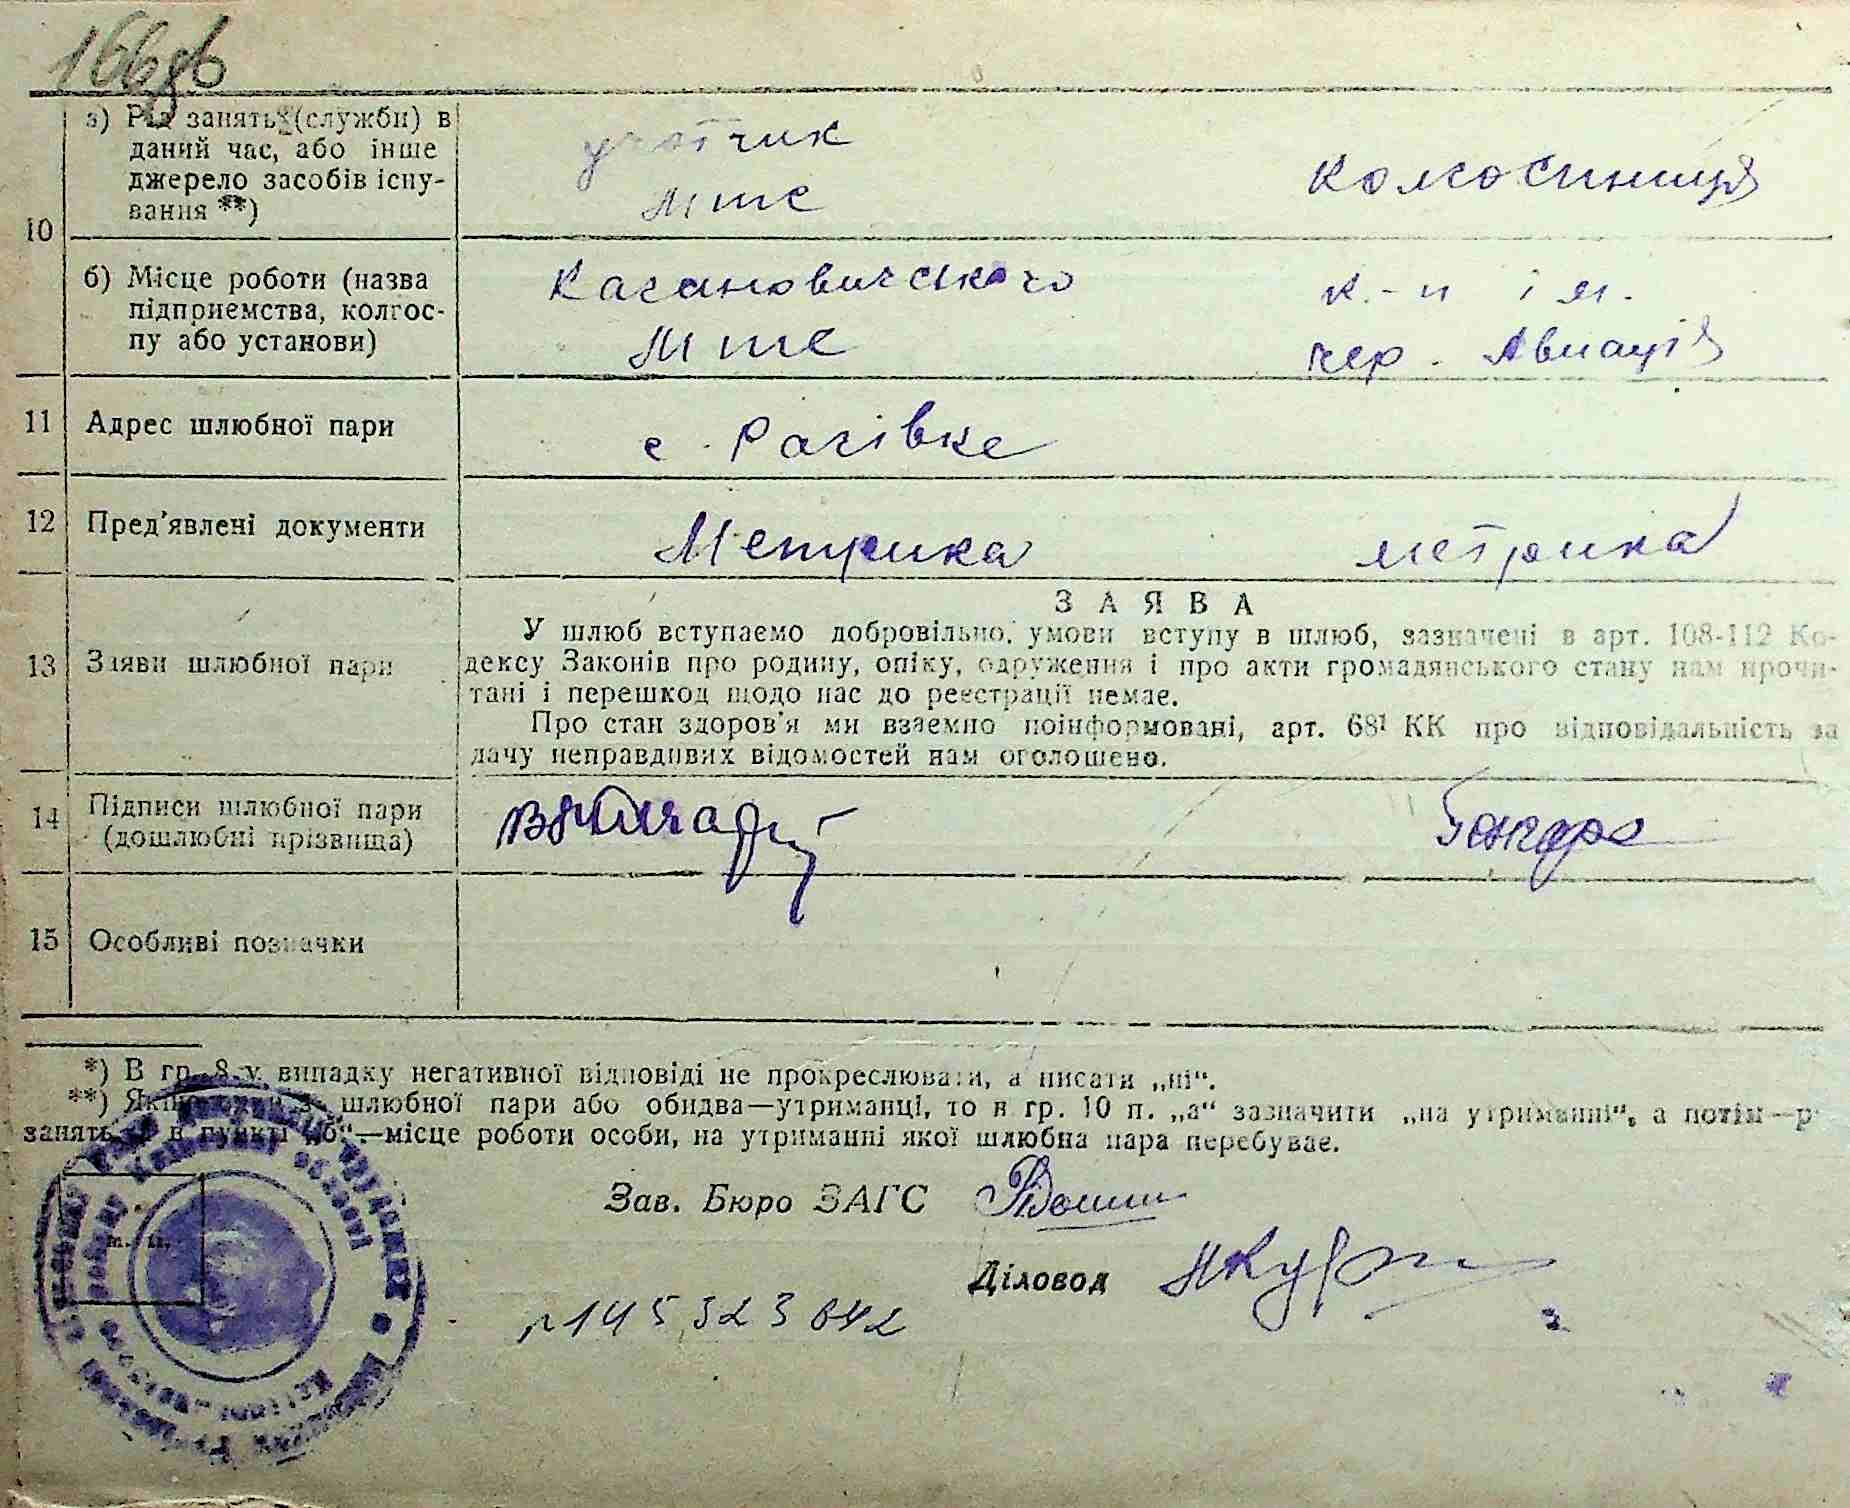 166зв
10
а) Рід занять (служби) в
даний час, або інше
джерело засобів існу-
вання **)
учотчик
мтс
колгоспниця
б) Місце роботи (назва
підприємства, колгос-
пу або установи)
Кагановичського
мтс
к.-п ім.
чер. Авиація
11 Адрес шлюбної пари
с. Рагівке
12 Пред'явлені документи
Метрика метрика
13 Заяви шлюбної пари
ЗАЯВА
У шлюб вступаємо добровільно, умови вступу в шлюб, зазначені в арт. 108-112 Ко-
дексу Законів про родину, опіку, одруження і про акти громадянського стану нам прочи-
тані і перешкод щодо нас до реєстрації немає.
Про стан здоров'я ми взаємно поінформовані, арт. 68¹ КК про відповідальність за
дачу неправдивих відомостей нам оголошено.
14 Підписи шлюбної пари
(дошлюбні прізвища)
15 Особливі позначки
*) В гр. 8 у випадку негативної відповіді не прокреслювати, а писати „ні".
**) Якщо шлюбної пари або обидва—утриманці, то в гр. 10 п. „а" зазначити „на утриманні", а потім—р
занять, в пункті „б".—місце роботи особи, на утриманні якої шлюбна пара перебуває.
м. п.
Зав. Бюро ЗАГС
Діловод
145 323 042